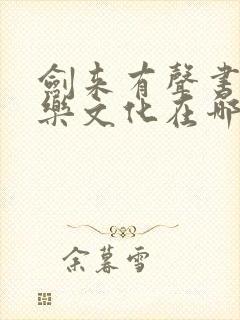 劍来有聲書
樂文化在哪
余暮雪